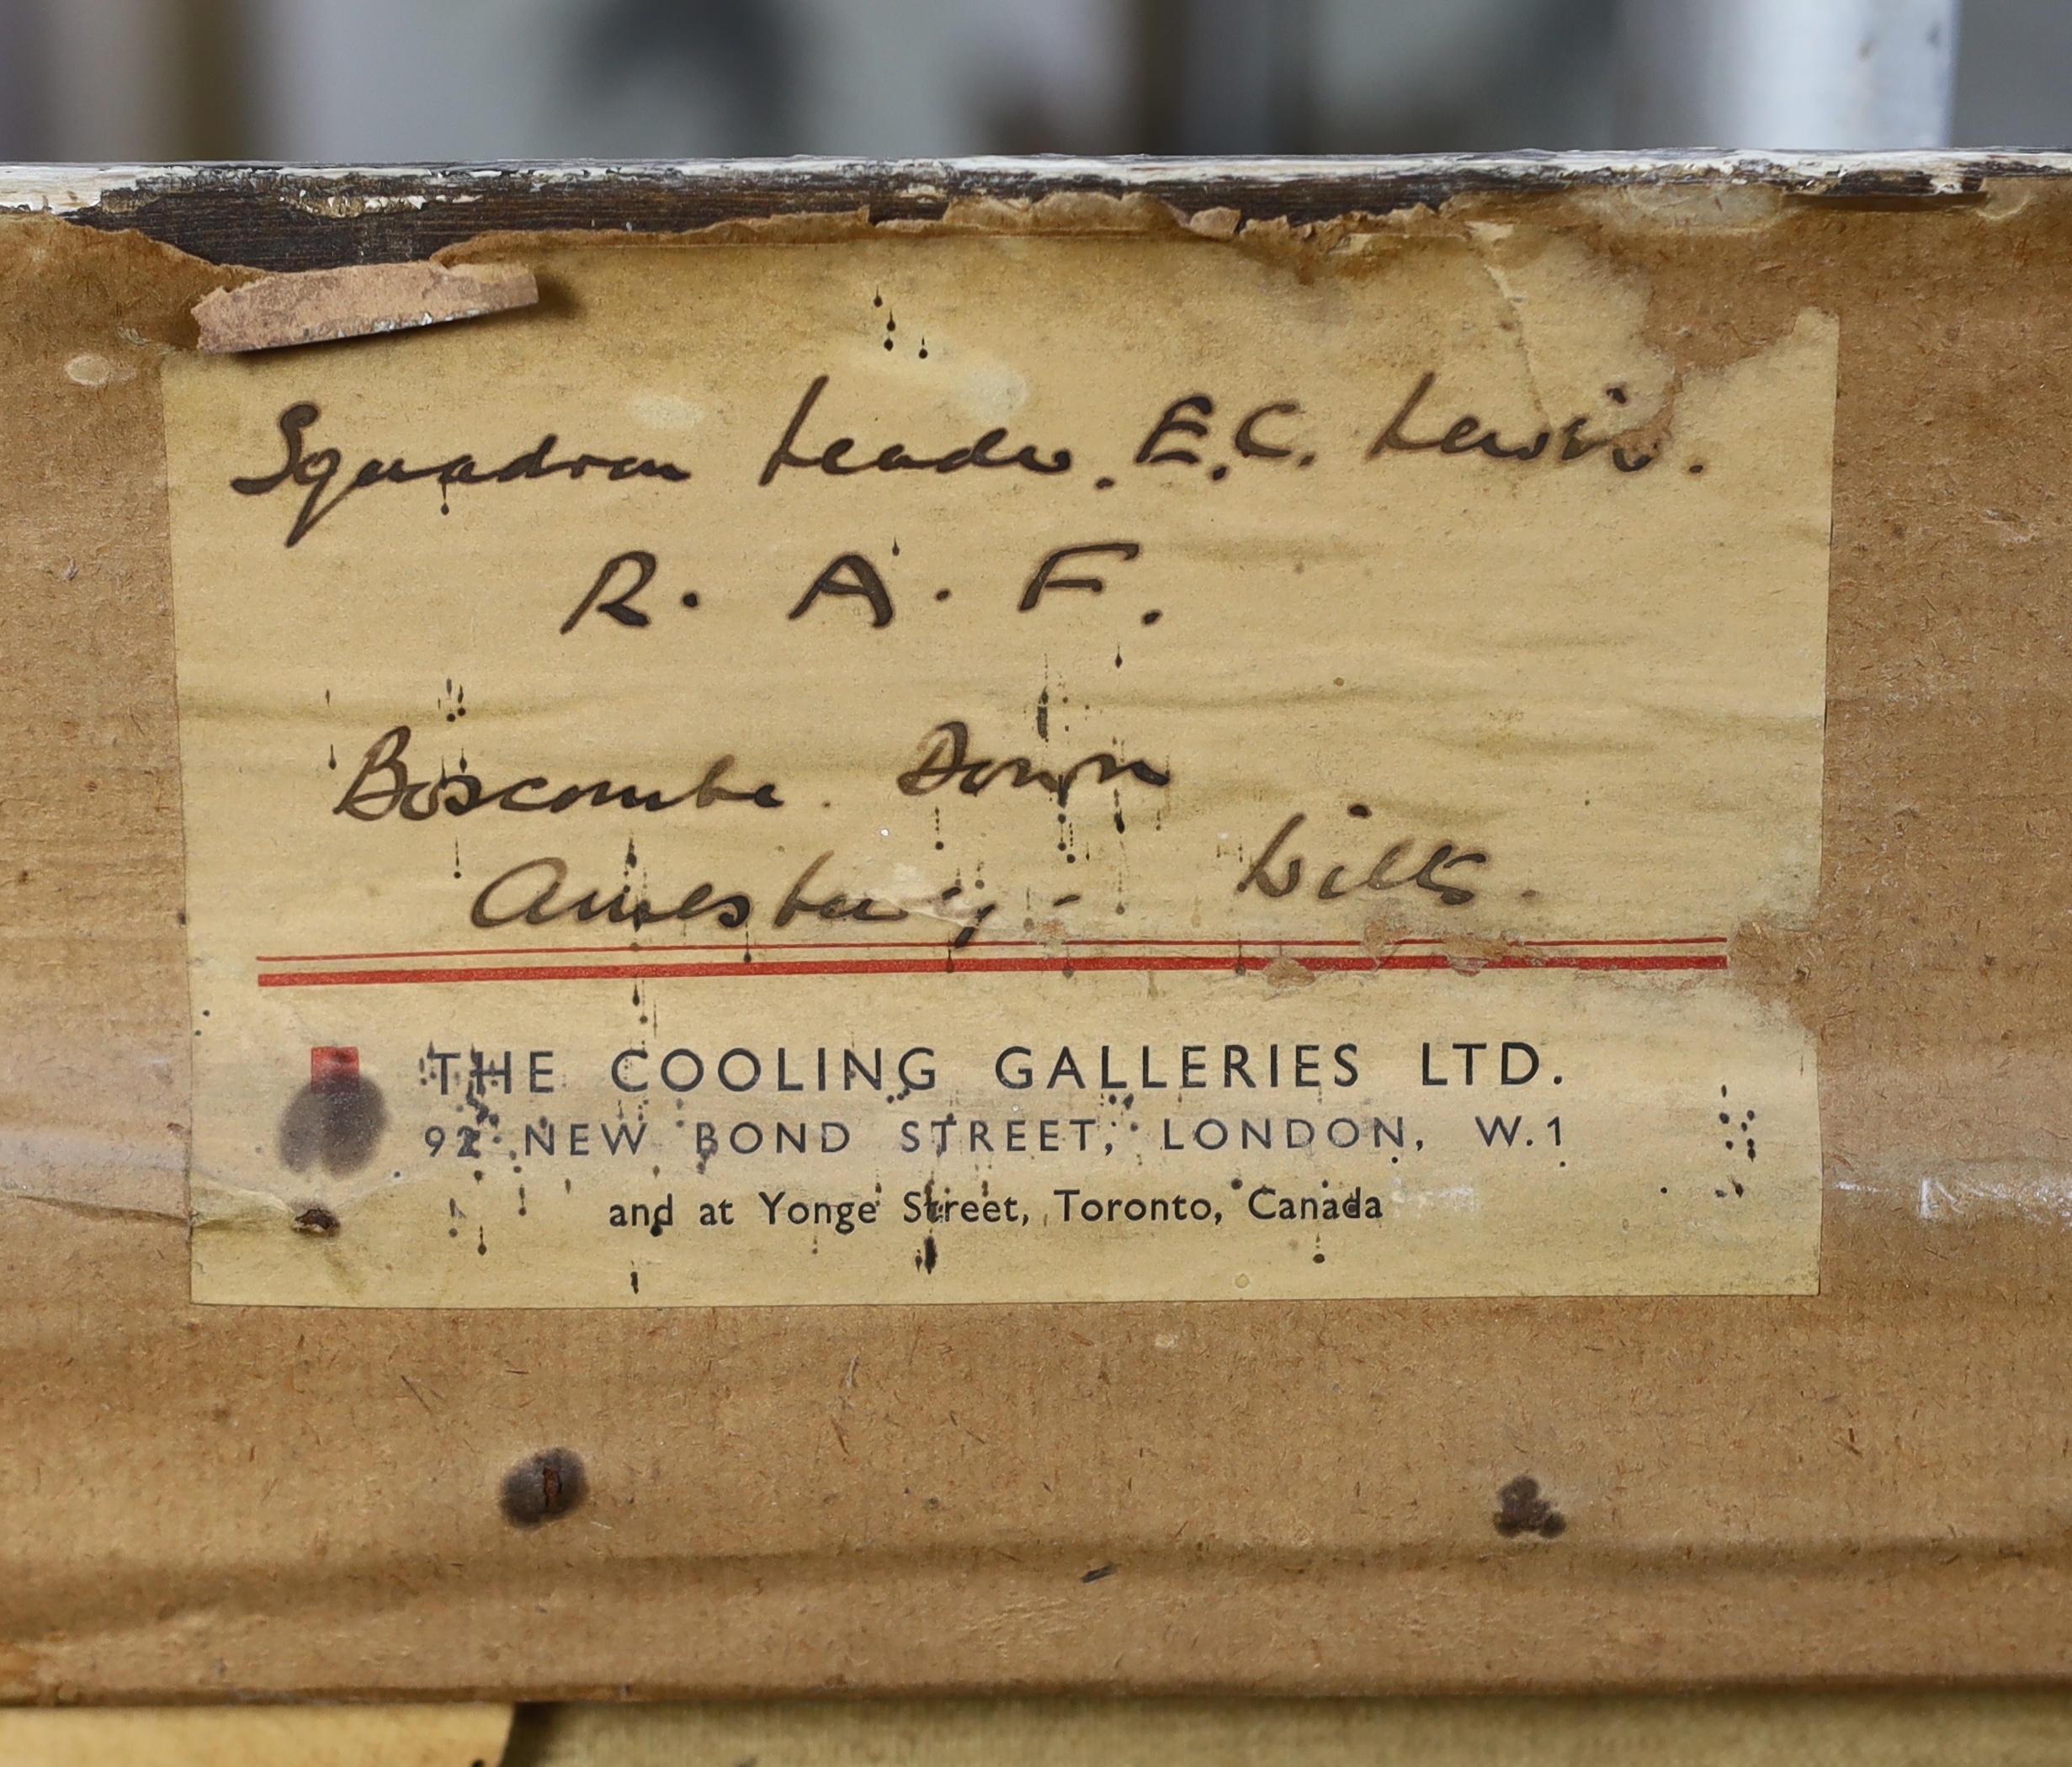 Squadron Leader. E.C. Lewis.
R. A. F.
Boscombe. Down
Amesbury - Wilts.
THE COOLING GALLERIES LTD.
92 NEW BOND STREET, LONDON, W.1
and at Yonge Street, Toronto, Canada